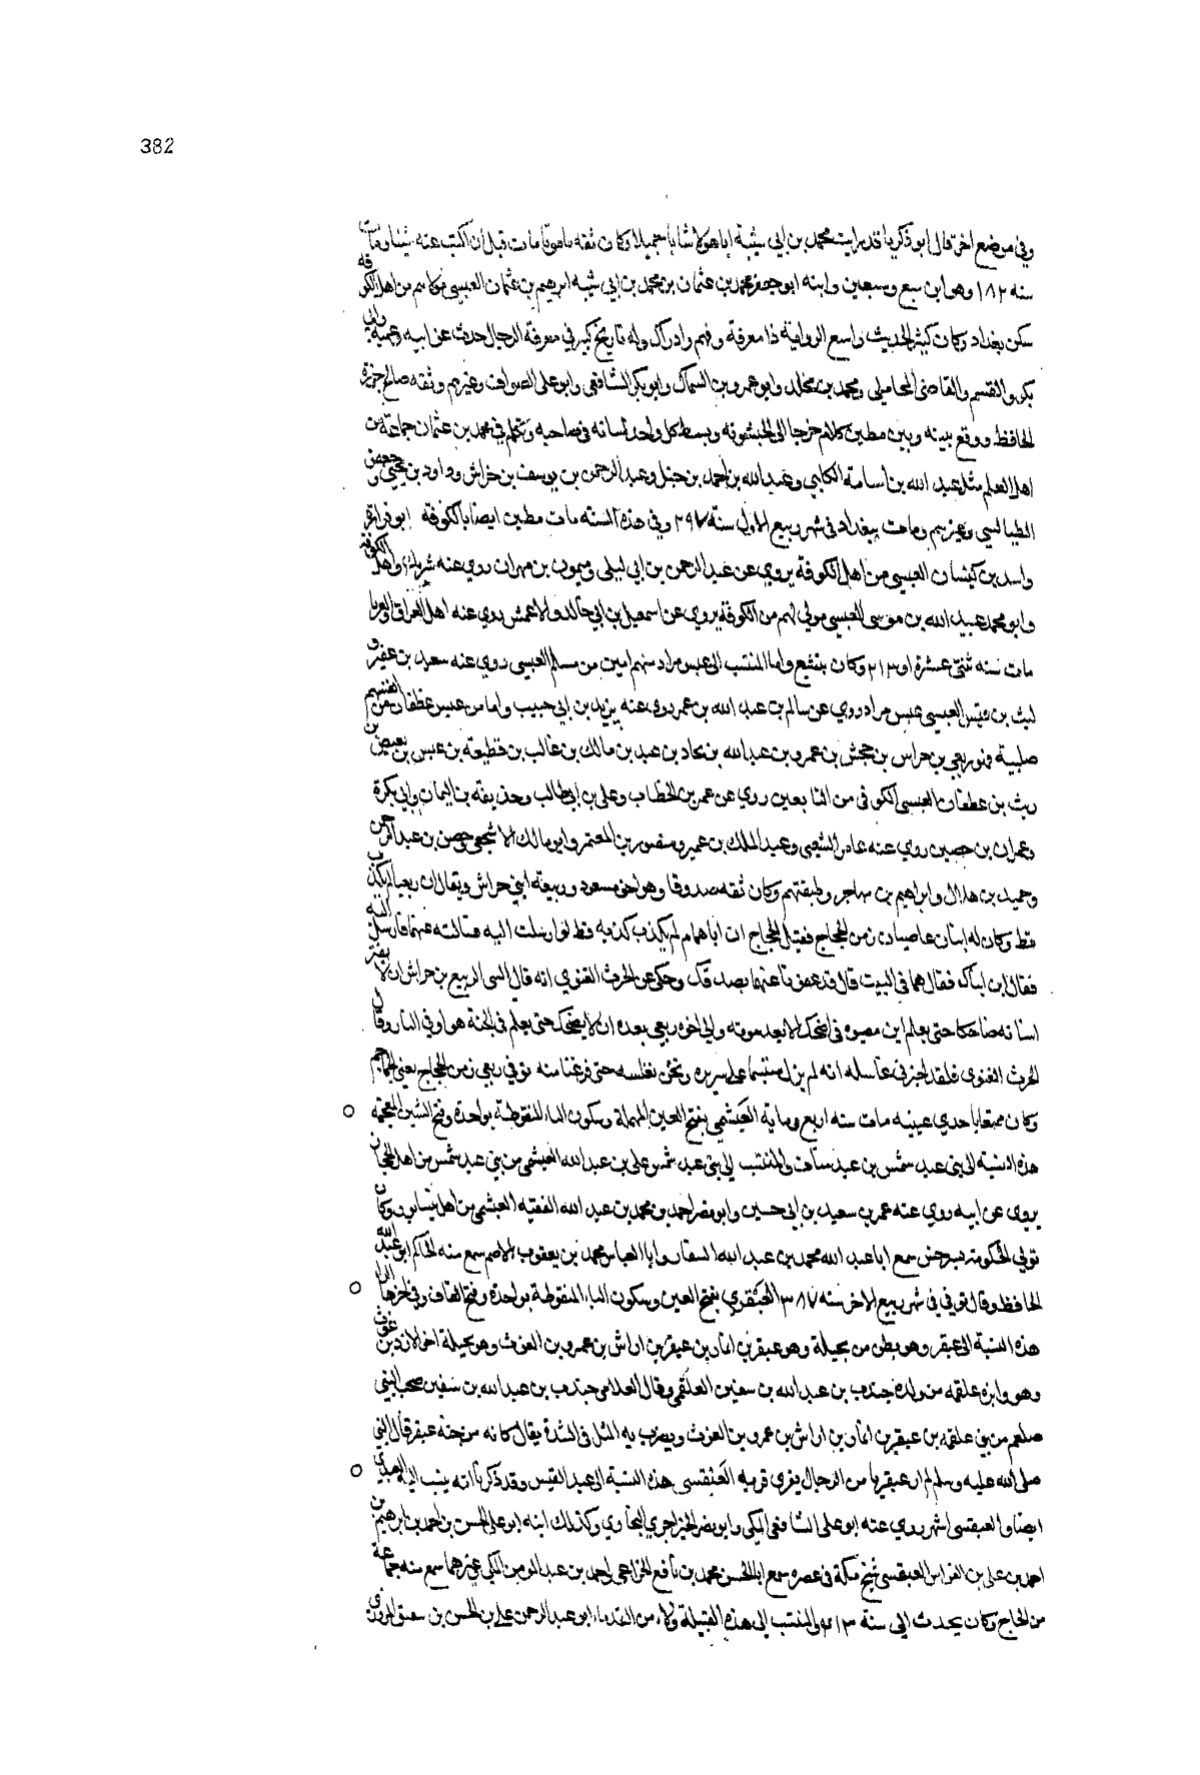 382
وفي موضع اخر قال ابو زكريا قد رايت محمد بن ابي شيبة ابا هولا شابا جميلا وكان ثقه مامونا مات قبل أن اكتب عنه شيئا ومات
سنه ١٨٢ وهو ابن سبع وسبعين وابنه ابو جعفر محمد بن عثمان بن محمد بن ابي شيبه ابرهيم بن عثمان العبسي من اهل الكوفه
سكن بغداد وكان كثير الحديث واسع الرواية ذا معرفة وفهم وادراك وله تاريخ كبير في معرفة الرجال حدث عن ابيه وعميه ابي
بكر والقسم والقاضي المحاملي ومحمد بن مخلد وابو عمرو بن السماك وابو بكر الشافعي وابو علي الصواف وغيرهم وثقه صالح جزرة
الحافظ ووقع بينه وبين مطين كلام خرجا الى الخشونه وبسط كل واحد لسانه في صاحبه وتكلم في محمد بن عثمان جماعة من
اهل العلم مثل عبد الله بن اسامة الكلبي وعبد الله بن احمد بن حنبل وعبد الرحمن بن يوسف بن خراش وداود بن يحيى وجعفر
الطيالسي وغيرهم ومات ببغداد في شهر ربيع الاول سنة ٢٩٧ وفي هذه السنه مات مطين ايضا بالكوفة ابو فزارة
راسد بن كيسان العبسي من اهل الكوفة يروي عن عبد الرحمن بن ابي ليلى وميمون بن مهران روي عنه شريك واهل الكوفة
وابو محمد عبيد الله بن موسى العبسي مولي لهم من الكوفة يروي عن اسمعيل بن ابي خالد والاعمش روي عنه اهل العراق والغربا
مات سنه ثنتي عشرة او ٢١٣ وكان يتشيع واما المنتسب الى عبس مراد منهم امين من مسلم العبسي روي عنه سعيد بن عفير و
ليث بن قيس العبسي عبس مراد روي عن سالم بن عبد الله بن عمر روى عنه يزيد بن ابي حبيب واما من عبس غطفان من انفسهم
صلبية فهو ربعي بن حراس بن جحش بن عمرو بن عبد الله بن بجاد بن عبد بن مالك بن غالب بن قطيعة بن عبس بن بغيض بن
ريث بن غطفان العبسي الكوفي من التابعين روي عن عمر بن الخطاب وعلي بن ابي طالب وحذيفه بن اليمان وابي بكرة
وعمران بن حصين روي عنه عامر الشعبي وعبد الملك بن عمير ومنصور بن المعتمر وابو مالك الاشجعي وحصين بن عبد الرحمن
وحميد بن هلال وابراهيم بن مهاجر وطبقتهم وكان ثقه صدوقا وهو اخو مسعود وربيعة ابني حراش ويقال ان ربعيا لم يكذب
قط وكان له ابنان عاصيان زمن الحجاج فقيل للحجاج ان اباهما لم يكذب كذبه قط لو ارسلت اليه فسالته عنهما فارسل اليه
فقال اين ابناك فقال هما في البيت قال قد عفونا عنهما بصدقك وحكي عن الحرث الغنوي انه قال الى الربيع بن حراش ان لا يفتر
اسنانه ضاحكا حتى يعلم اين مصيره فما ضحك الا بعد موته والى اخوه ربعي بعده ان لا يضحك حتى يعلم في الجنة هو او في النار وقال
الحرث الغنوي فلقد اخبرني غاسله انه لم يزل متبسما على سريره ونحن نغسله حتى فرغنا منه توفي ربعي زمن الحجاج يعني الجماجم
وكان مصابا باحدي عينيه مات سنه اربع وماية العبشمي بفتح العين المهملة وسكون البا المنقوطة بواحدة وفتح الشين المعجمة
هذه النسبة الى بني عبد شمس بن عبد مناف والمنتسب الى بني عبد شمس علي بن عبد الله العبشمي من بني عبد شمس من اهل الحجاز
يروي عن ابيه روي عنه عمر بن سعيد بن ابي حسين وابو نصر احمد بن محمد بن عبد الله الفقيه العبشمي من اهل نيسابور وكان
تولي الحكومة بسرخس سمع ابا عبد الله محمد بن عبد الله الصفار وابا العباس محمد بن يعقوب الاصم سمع منه الحاكم ابو عبد الله
الحافظ وقال توفي في شهر ربيع الاخر سنه ٣٨٧ العبقري بفتح العين وسكون الباء المنقوطة بواحدة وفتح القاف وفي اخرها الرا
هذه النسبة الى عبقر وهو بطن من بجيلة وهو عبقر بن انمار بن عبقر بن اراش بن عمرو بن الغوث وهو بجيلة اخو الازد بن غوث
وهو وابره علقمه من ولده جندب بن عبد الله بن سفين العلقي وقال الغلابي جندب بن عبد الله بن سفين صحب النبي
صلعم من بني علقه بن عبقر بن انمار بن اراش بن عمرو بن الغوث ويضرب به المثل في الشدة يقال كانه من جنة عبقر قال النبي
صلى الله عليه وسلم لم ار عبقريا من الرجال يفري فريه العبقسي هذه النسبة الى عبد القيس وقد ذكرنا انه ينسب اليه العبدي
ايضا والعبقسي اشهر روي عنه ابو علي الشافعي المكي وابو نصر الخيزاجري البخاري وكذلك ابنه ابو علي الحسن بن احمد بن ابرهيم بن
احمد بن علي بن الفراس العبقسي شيخ مكة في عصره سمع ابا الحسن محمد بن نافع الخزاعي واحمد بن عبد المومن المكي وغيرهما سمع منه جماعة
من الحاج وكان يحدث الى سنة ٤١٣ والمنتسب الى هذه القبيلة ولاء من القدماء ابو عبد الرحمن علي بن الحسن بن شقيق المروزي